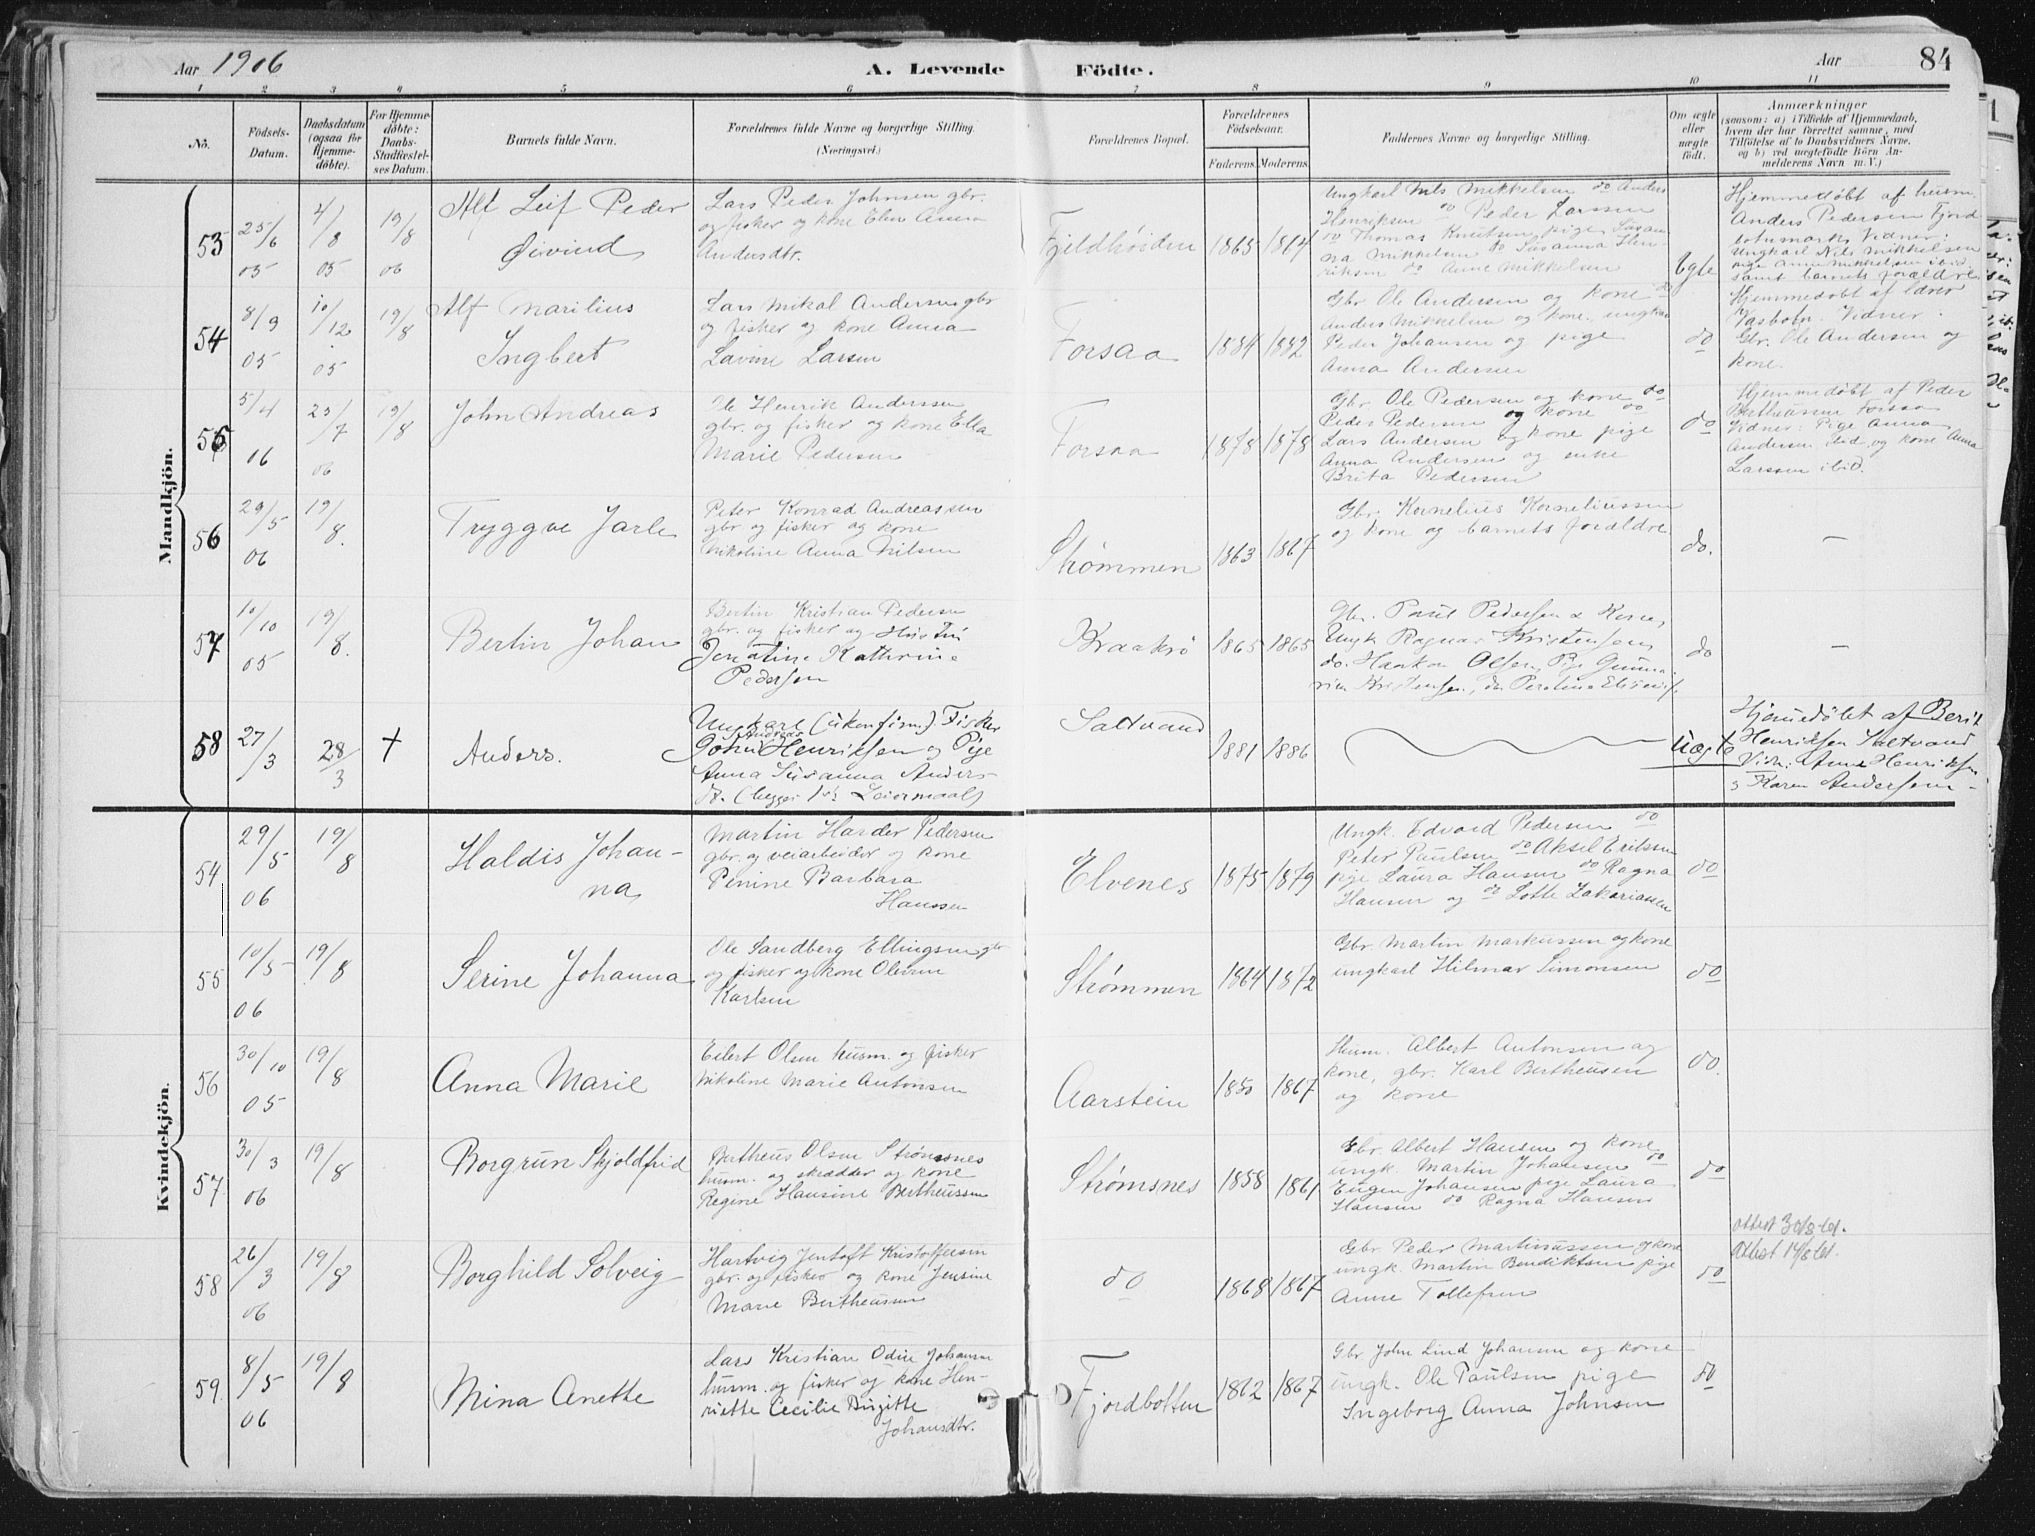 Aar 1906
A. Levende Födte.
Aar
84
1 2 3 4 5 6 7 8 9 10 11
No.
Födsels-
Datum.
Daabsdatum
(ogsaa for
Hjemme-
döbte).
For Hjemme-
döbte:
Daabs-
Stadfæstel-
ses Datum.
Barnets fulde Navn.
Forældrenes fulde Navne og borgerlige Stilling.
(Næringsvei.)
Forældrenes Bopæl.
Forældrenes
Födselsaar.
Faderens. Moderens.
Faddernes Navne og borgerlige Stilling.
Om ægte
eller
uægte
födt.
Anmærkninger
(saasom: a) i Tilfælde af Hjemmedaab,
hvem der har forrettet samme, med
Tilföielse af to Daabsvidners Navne,
og b) ved uægtefödte Börn An-
melderens Navn m. V.)
Mandkjön.
53
25/6 05
4/8 05
19/8 06
Alf Leif Peder
Øivind
Lars Peder Johnsen gbr.
og fisker og kone Elen Anna
Andersdtr.
Fjeldhøiden
1865 1864
Ungkarl Nils Mikkelsen do Anders
Henriksen do Peder Larssen
do Thomas Knutsen pige Susan
na Mikkelsen do Susanna Hen-
riksen do Anne Mikkelsen
Egte
Hjemmedøbt af husm.
Anders Pedersen Fjord
botnmark. Vidner:
Ungkarl Nils Mikkelsen
pige Anne Mikkelsen ibid.
samt barnets forældre.
54
8/9 05
10/12 05
19/8
Alf Marilius
Ingbert
Lars Mikal Andersen gbr
og fisker og kone Anna
Lavine Larsen
Forsaa
1884 1882
Gbr Ole Andersen og kone do
Anders Mikkelsen og kone, ungkar
Peder Johansen og pige
Anna Andersen
do
Hjemmedøbt af lærer
Vasbotn. Vidner:
Gbr. Ole Andersen og
kone.
55
5/4 06
23/7 06
19/8
John Andreas
Ole Henrik Anderssen
gbr. og fisker og kone Ella
Marie Pedersen
Forsaa
1878 1878
Gbr. Ole Pedersen og kone do
Peder Pedersen og kone do
Lars Andersen og kone pige
Anna Andersen og enke
Brita Pedersen
do
Hjemmedøbt af Peder
Bertheussen Forsaa
Vidner: Pige Anna
Andersen ibid og kone Anna
Larssen ibid.
56
29/5 06
19/8.
Tryggve Jarle
Peter Konrad Andreassen
gbr. og fisker og kone
Nikoline Anna Nilsen
Strømmen
1863 1867
Gbr. Kornelius Korneliussen
og kone og barnets forældre
do.
—
57
10/10 05
19/8.
Bertin Johan
Bertin Kristian Pedersen
gbr. og fisker og Hustru
Jensine Kathrine
Pedersen
Kraakrø
1865 1865
Gbr. Paul Pedersen & Kone,
Ungk Ragnar Kristensen,
do. Haakon Olsen, Pige Gunna
rine Kristensen, do Pernilius
do
—
58
27/3
28/3
+
Anders.
Ungkarl (ukonfirm.) Fisker
Andreas
Johan Henriksen og Pige
Anna Susanna Anders-
dt. (begges 1ste Leiermaal)
Saltvand
1881 1886
Uægte
Hjemmedøbt af Berit
Henriksen Saltvand
Vidn: Anne Henriksen
& Karen Andersen.
Kvindekjön.
54
29/5 06
19/8
Haldis Johan-
na,
Martin Harder Pedersen
gbr. og veiarbeider og kone
Penine Barbara
Hanssen
Elvenes
1875 1879
Ungk. Edvard Pedersen do
Peter Paulsen do Aksel Eriksen
pige Laura Hansen do Ragna
Hansen og do Lotte Zakariassen
do
55
10/5 06
19/8
Serine Johanna
Ole Sandberg Ellingsen gbr
og fisker og kone Olevine
Karlsen
Strømmen
1864 1872
Gbr. Martin Markussen og kone
ungkarl Hilmar Simonsen
do
56
30/10 05
19/8
Anna Marie
Eilert Olsen husm. og fisker
Nikoline Marie Antonsen
Aarstein
1850 1867
Husm. Albert Antonsen og
kone, gbr. Karl Bertheusen
og kone
do.
57
30/3 06
19/8
Borgrun Skjoldfrid
Bertheus Olsen Strømsnes
husm. og skrædder og kone
Regine Hansine Bertheussen
Strømsnes
1858 1861
Gbr Albert Hansen og kone
ungk. Martin Johansen do
Eugen Johansen pige Laura
Hansen do Ragna Hansen
do
58
26/3 06
19/8
Borghild Solveig
Hartvig Jentoft Kristoffersen
gbr. og fisker og kone Jensine
Marie Bertheussen
do
1868 1867
Gbr Peder Martinussen og kone
ungk. Martin Bendiktsen pige
Anne Tollefsen
do
attest
Attest
59.
8/5 06
19/8
Mina Anette
Lars Kristian Odin Johansen
husm. og fisker og kone Hen-
riette Cecilie Birgitte
Johansdtr.
Fjordbotten
1862 1867
Gbr John Lind Johansen og kone
ungk. Ole Paulsen pige
Ingeborg Anna Johnsen
do